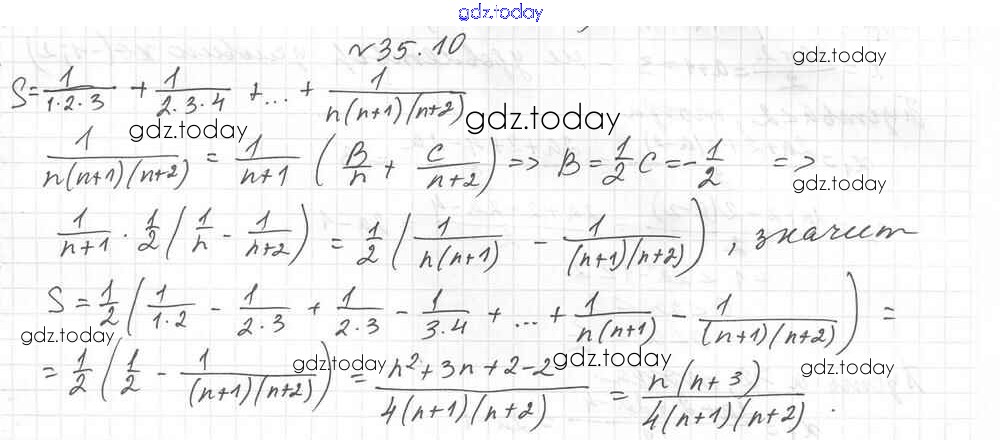 gdz.today
№35.10
gdz.today
S = 1/(1·2·3) + 1/(2·3·4) + ... + 1/(n(n+1)(n+2))
gdz.today gdz.today
1/(n(n+1)(n+2)) = 1/(n+1) (B/n + C/(n+2)) => B = 1/2 C = -1/2 =>
gdz.today
1/(n+1) · 1/2 (1/n - 1/(n+2)) = 1/2 (1/(n(n+1)) - 1/((n+1)(n+2))), значит
S = 1/2 (1/(1·2) - 1/(2·3) + 1/(2·3) - 1/(3·4) + ... + 1/(n(n+1)) - 1/((n+1)(n+2))) =
gdz.today gdz.today gdz.today gdz.today
= 1/2 (1/2 - 1/((n+1)(n+2))) = (n²+3n+2-2)/(4(n+1)(n+2)) = n(n+3)/(4(n+1)(n+2)).